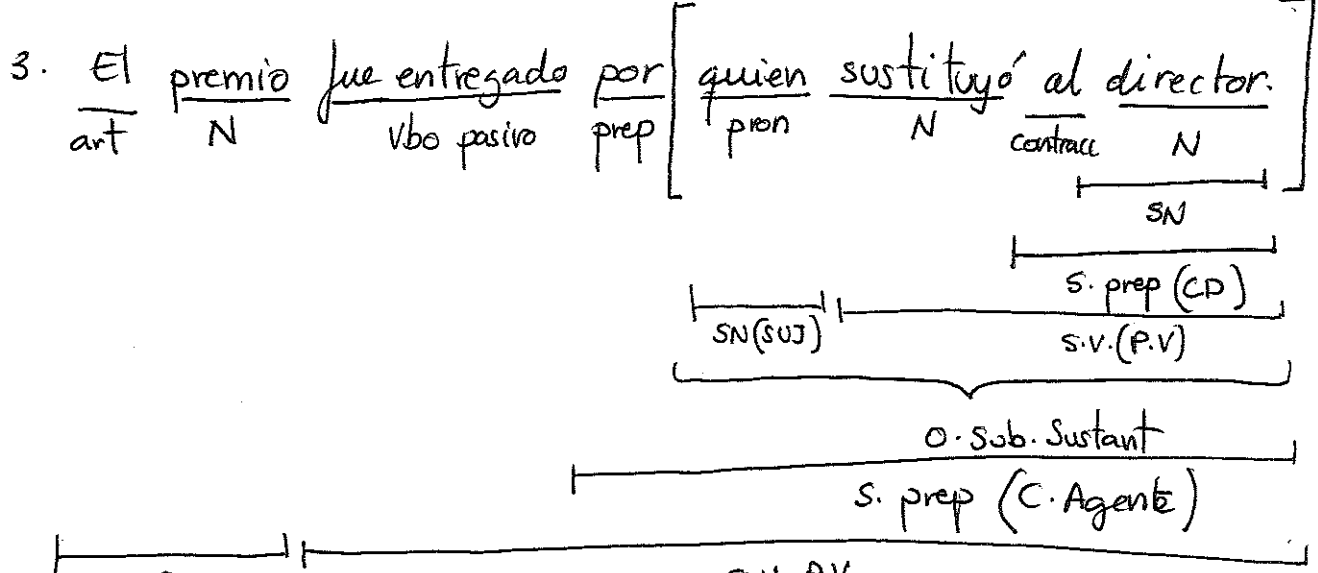 3. El premio fue entregado por [quien sustituyó al director.]
art N Vbo pasivo prep pron N contracc N
SN
S. prep (CD)
SN(SUJ) S.V.(P.V)
O. Sub. Sustant
S. prep (C. Agente)